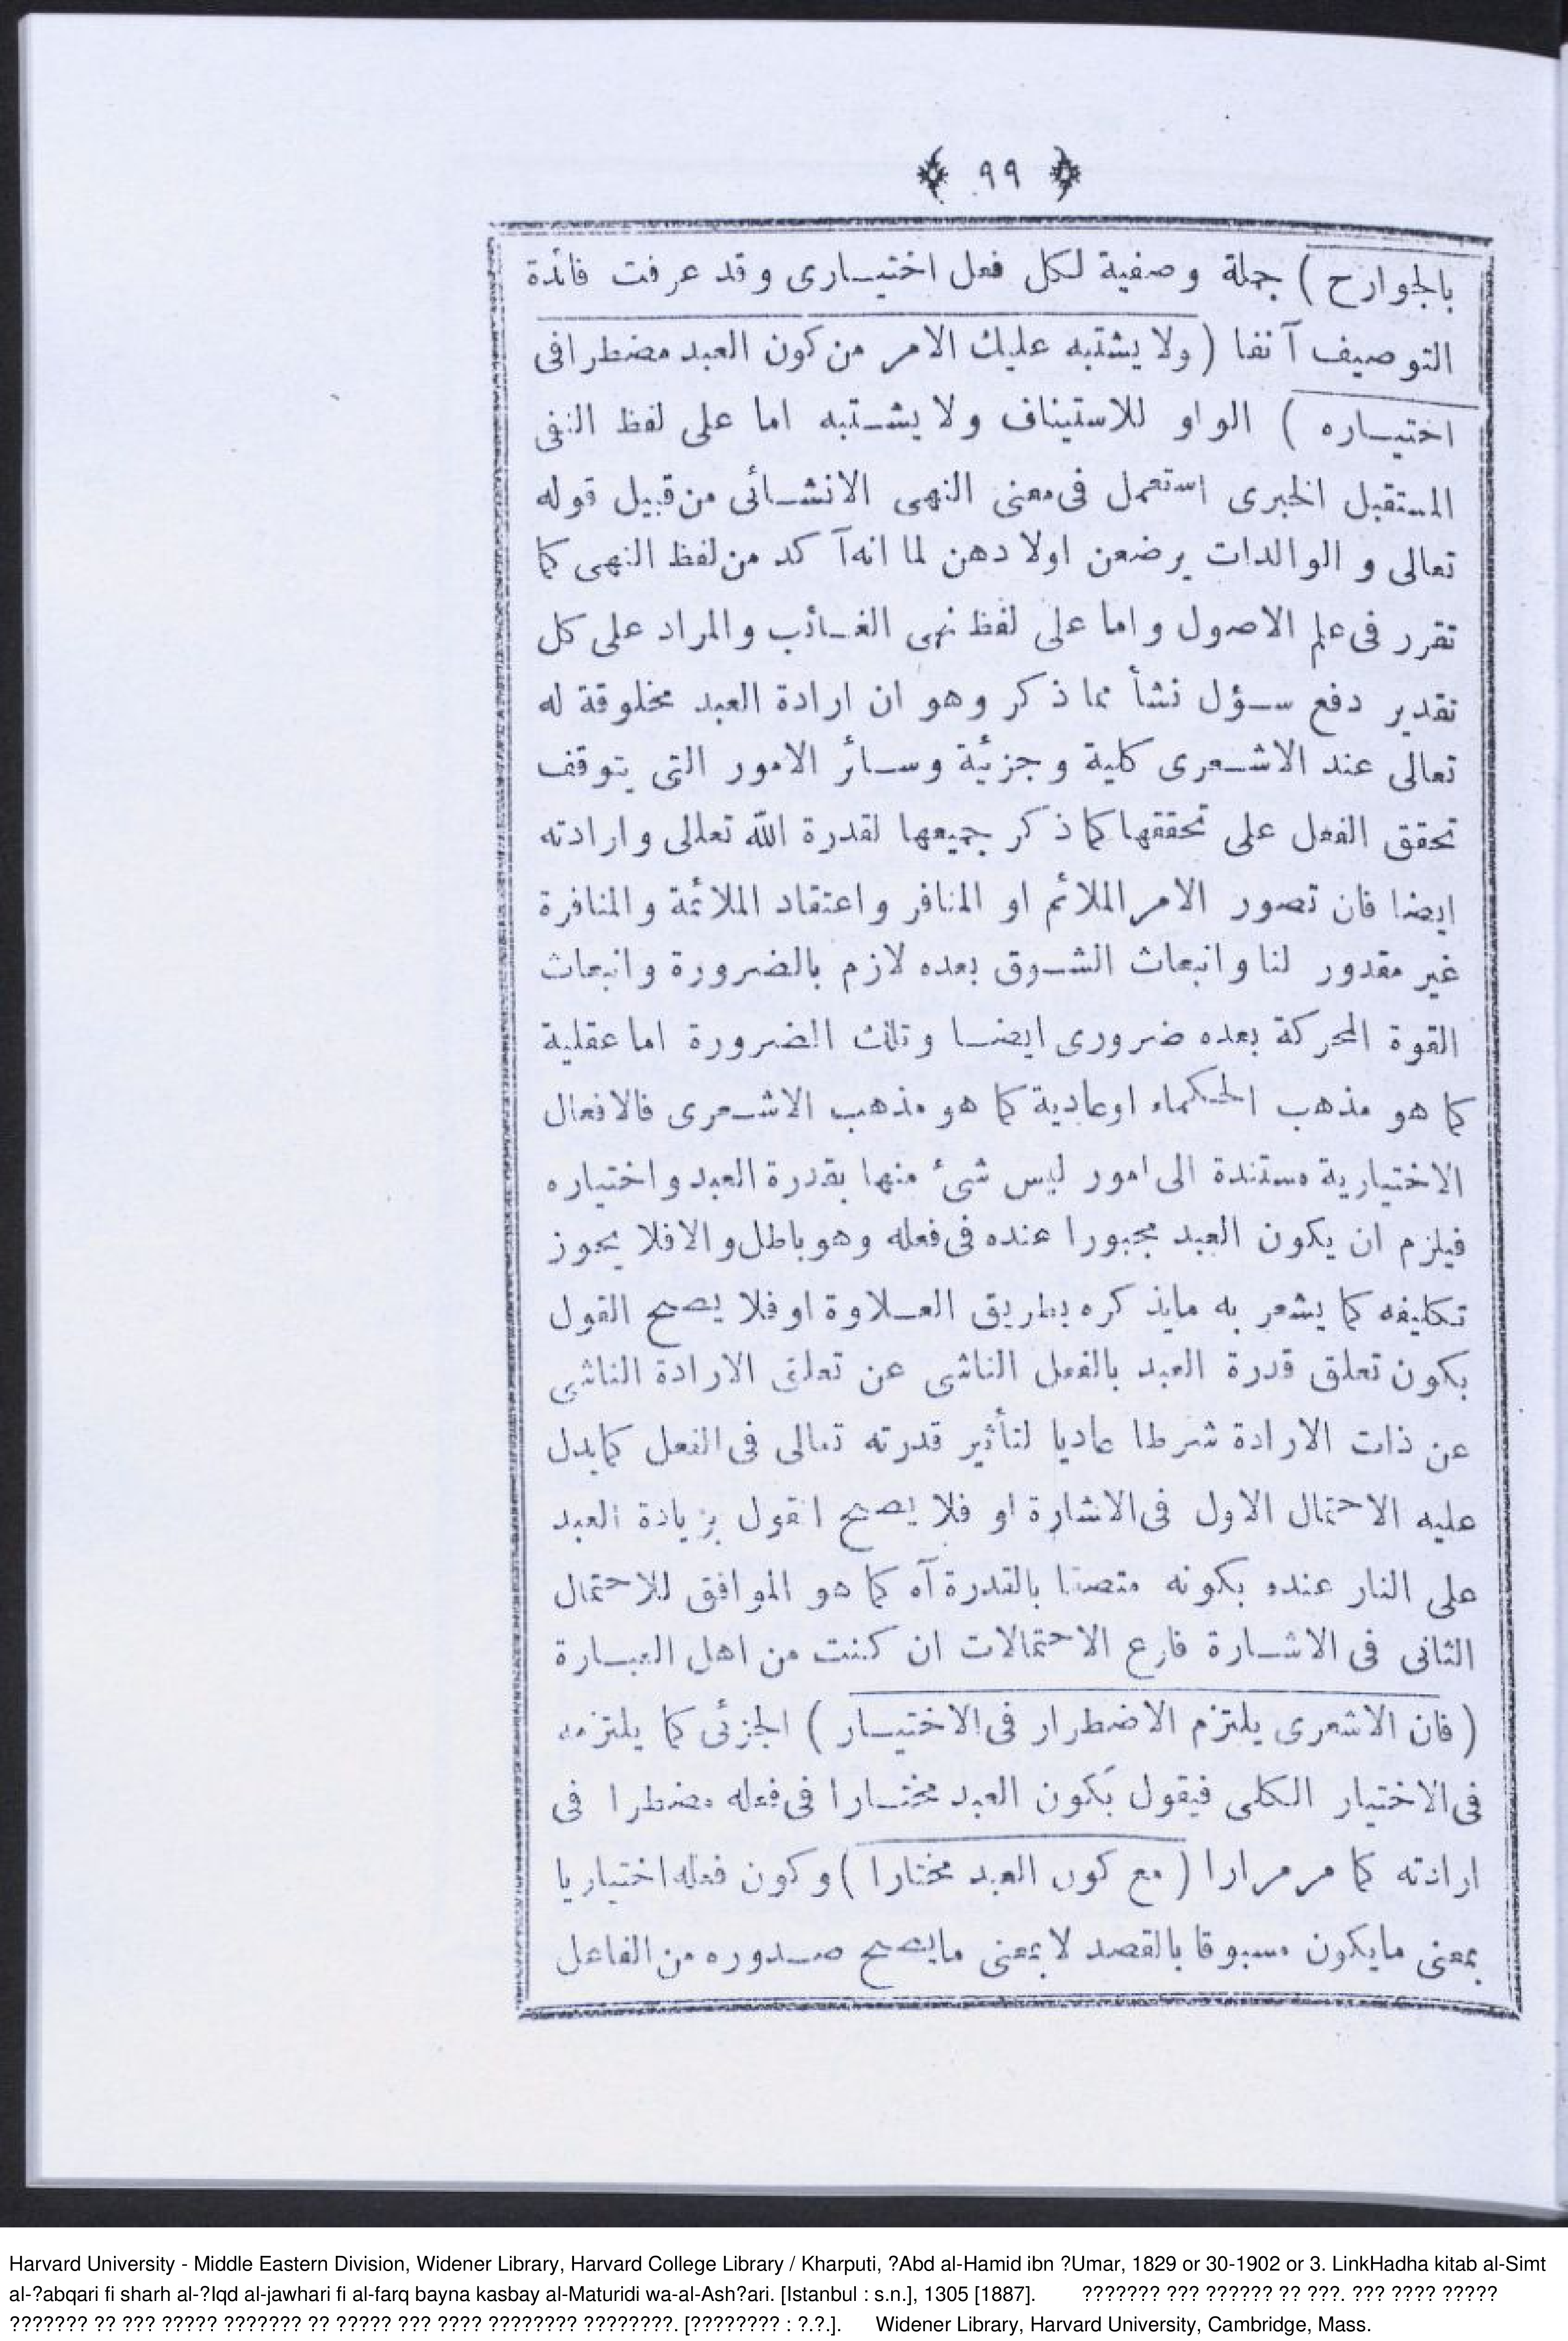 ﴿ ٩٩ ﴾
بالجوارح ) جملة وصفية لكل فعل اختيارى وقد عرفت فائدة
التوصيف آنفا ( ولا يشتبه عليك الامر من كون العبد مضطرا فى
اختياره ) الواو للاستيناف ولا يشتبه اما على لفظ النفى
المستقبل الخبرى استعمل فى معنى النهى الانشائى من قبيل قوله
تعالى و الوالدات يرضعن اولادهن لما انه آكد من لفظ النهى كما
تقرر فى علم الاصول واما على لفظ نهى الغائب والمراد على كل
تقدير دفع سؤل نشأ مما ذكر وهو ان ارادة العبد مخلوقة له
تعالى عند الاشعرى كلية وجزئية وسائر الامور التى يتوقف
تحقق الفعل على تحققها كما ذكر جميعها لقدرة الله تعالى وارادته
ايضا فان تصور الامر الملائم او المنافر واعتقاد الملائمة والمنافرة
غير مقدور لنا وانبعاث الشوق بعده لازم بالضرورة وانبعاث
القوة المحركة بعده ضرورى ايضا وتلك الضرورة اما عقلية
كما هو مذهب الحكماء اوعادية كما هو مذهب الاشعرى فالافعال
الاختيارية مستندة الى امور ليس شئ منها بقدرة العبد واختياره
فيلزم ان يكون العبد مجبورا عنده فى فعله وهو باطل والا فلا يجوز
تكليفه كما يشعر به مايذكره بطريق العلاوة او فلا يصح القول
بكون تعلق قدرة العبد بالفعل الناشى عن تعلق الارادة الناشى
عن ذات الارادة شرطا عاديا لتأثير قدرته تعالى فى الفعل كمايدل
عليه الاحتمال الاول فى الاشارة او فلا يصح القول بزيادة العبد
على النار عنده بكونه متصفا بالقدرة آه كما هو الموافق للاحتمال
الثانى فى الاشارة فارع الاحتمالات ان كنت من اهل العبارة
( فان الاشعرى يلتزم الاضطرار فى الاختيار ) الجزئى كما يلتزمه
فى الاختيار الكلى فيقول بكون العبد مختارا فى فعله مضطرا فى
ارادته كما مر مرارا ( مع كون العبد مختارا ) وكون فعله اختياريا
بمعنى مايكون مسبوقا بالقصد لا بمعنى مايصح صدوره من الفاعل
Harvard University - Middle Eastern Division, Widener Library, Harvard College Library / Kharputi, ?Abd al-Hamid ibn ?Umar, 1829 or 30-1902 or 3. LinkHadha kitab al-Simt
al-?abqari fi sharh al-?Iqd al-jawhari fi al-farq bayna kasbay al-Maturidi wa-al-Ash?ari. [Istanbul : s.n.], 1305 [1887]. ??????? ??? ?????? ?? ???. ??? ???? ?????
??????? ?? ??? ????? ??????? ?? ????? ??? ???? ???????? ????????. [???????? : ?.?.]. Widener Library, Harvard University, Cambridge, Mass.